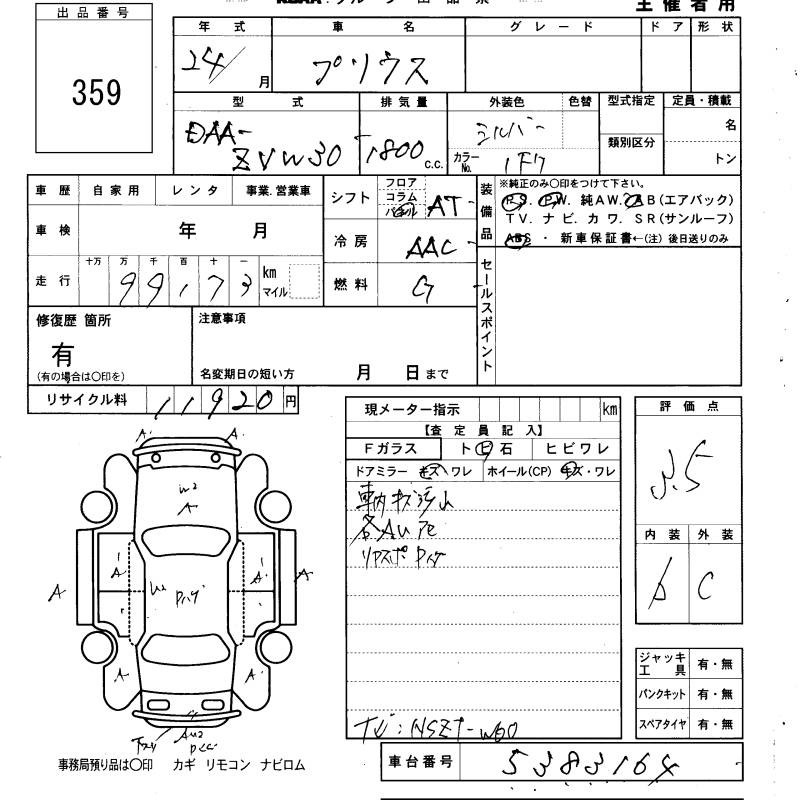 主催者用
出品番号
359
年式 車名 グレード ドア 形状
24/ 月 プリウス
型式 排気量 外装色 色替 型式指定 定員・積載
DAA-ZVW30 1800 c.c. シルバー 類別区分 名
カラーNo. 1F7 トン
車歴 自家用 レンタ 事業.営業車
車検 年 月
走行 十万 万 千 百 十 一
99173 km マイル
シフト フロア コラム パネル AT
冷房 AAC
燃料 G
装備品
※純正のみ○印をつけて下さい。
P.S. P.W. 純AW. AB(エアバック)
TV. ナビ. カワ. SR(サンルーフ)
ABS ・ 新車保証書←(注) 後日送りのみ
セールスポイント
修復歴 箇所
有
(有の場合は○印を)
注意事項
名変期日の短い方 月 日まで
リサイクル料 11920 円
現メーター指示 km
【査定員記入】
Fガラス トビ石 ヒビワレ
ドアミラー キズ・ワレ ホイール(CP) キズ・ワレ
車内キズ汚れ
TV:NSZT-W60
評価点
3.5
内装 外装
C
A A
W2
A
A A A A
W2
A A
ジャッキ工具 有・無
パンクキット 有・無
スペアタイヤ 有・無
事務局預り品は○印 カギ リモコン ナビロム
車台番号 5383164